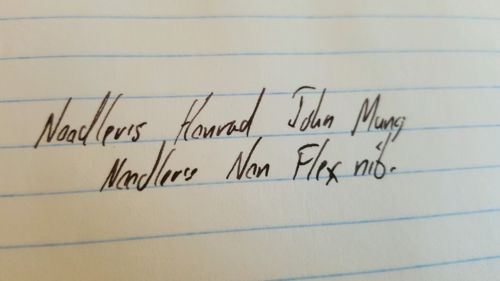 Noodlers Konrad, John Mung
Noodlers Non Flex nib.